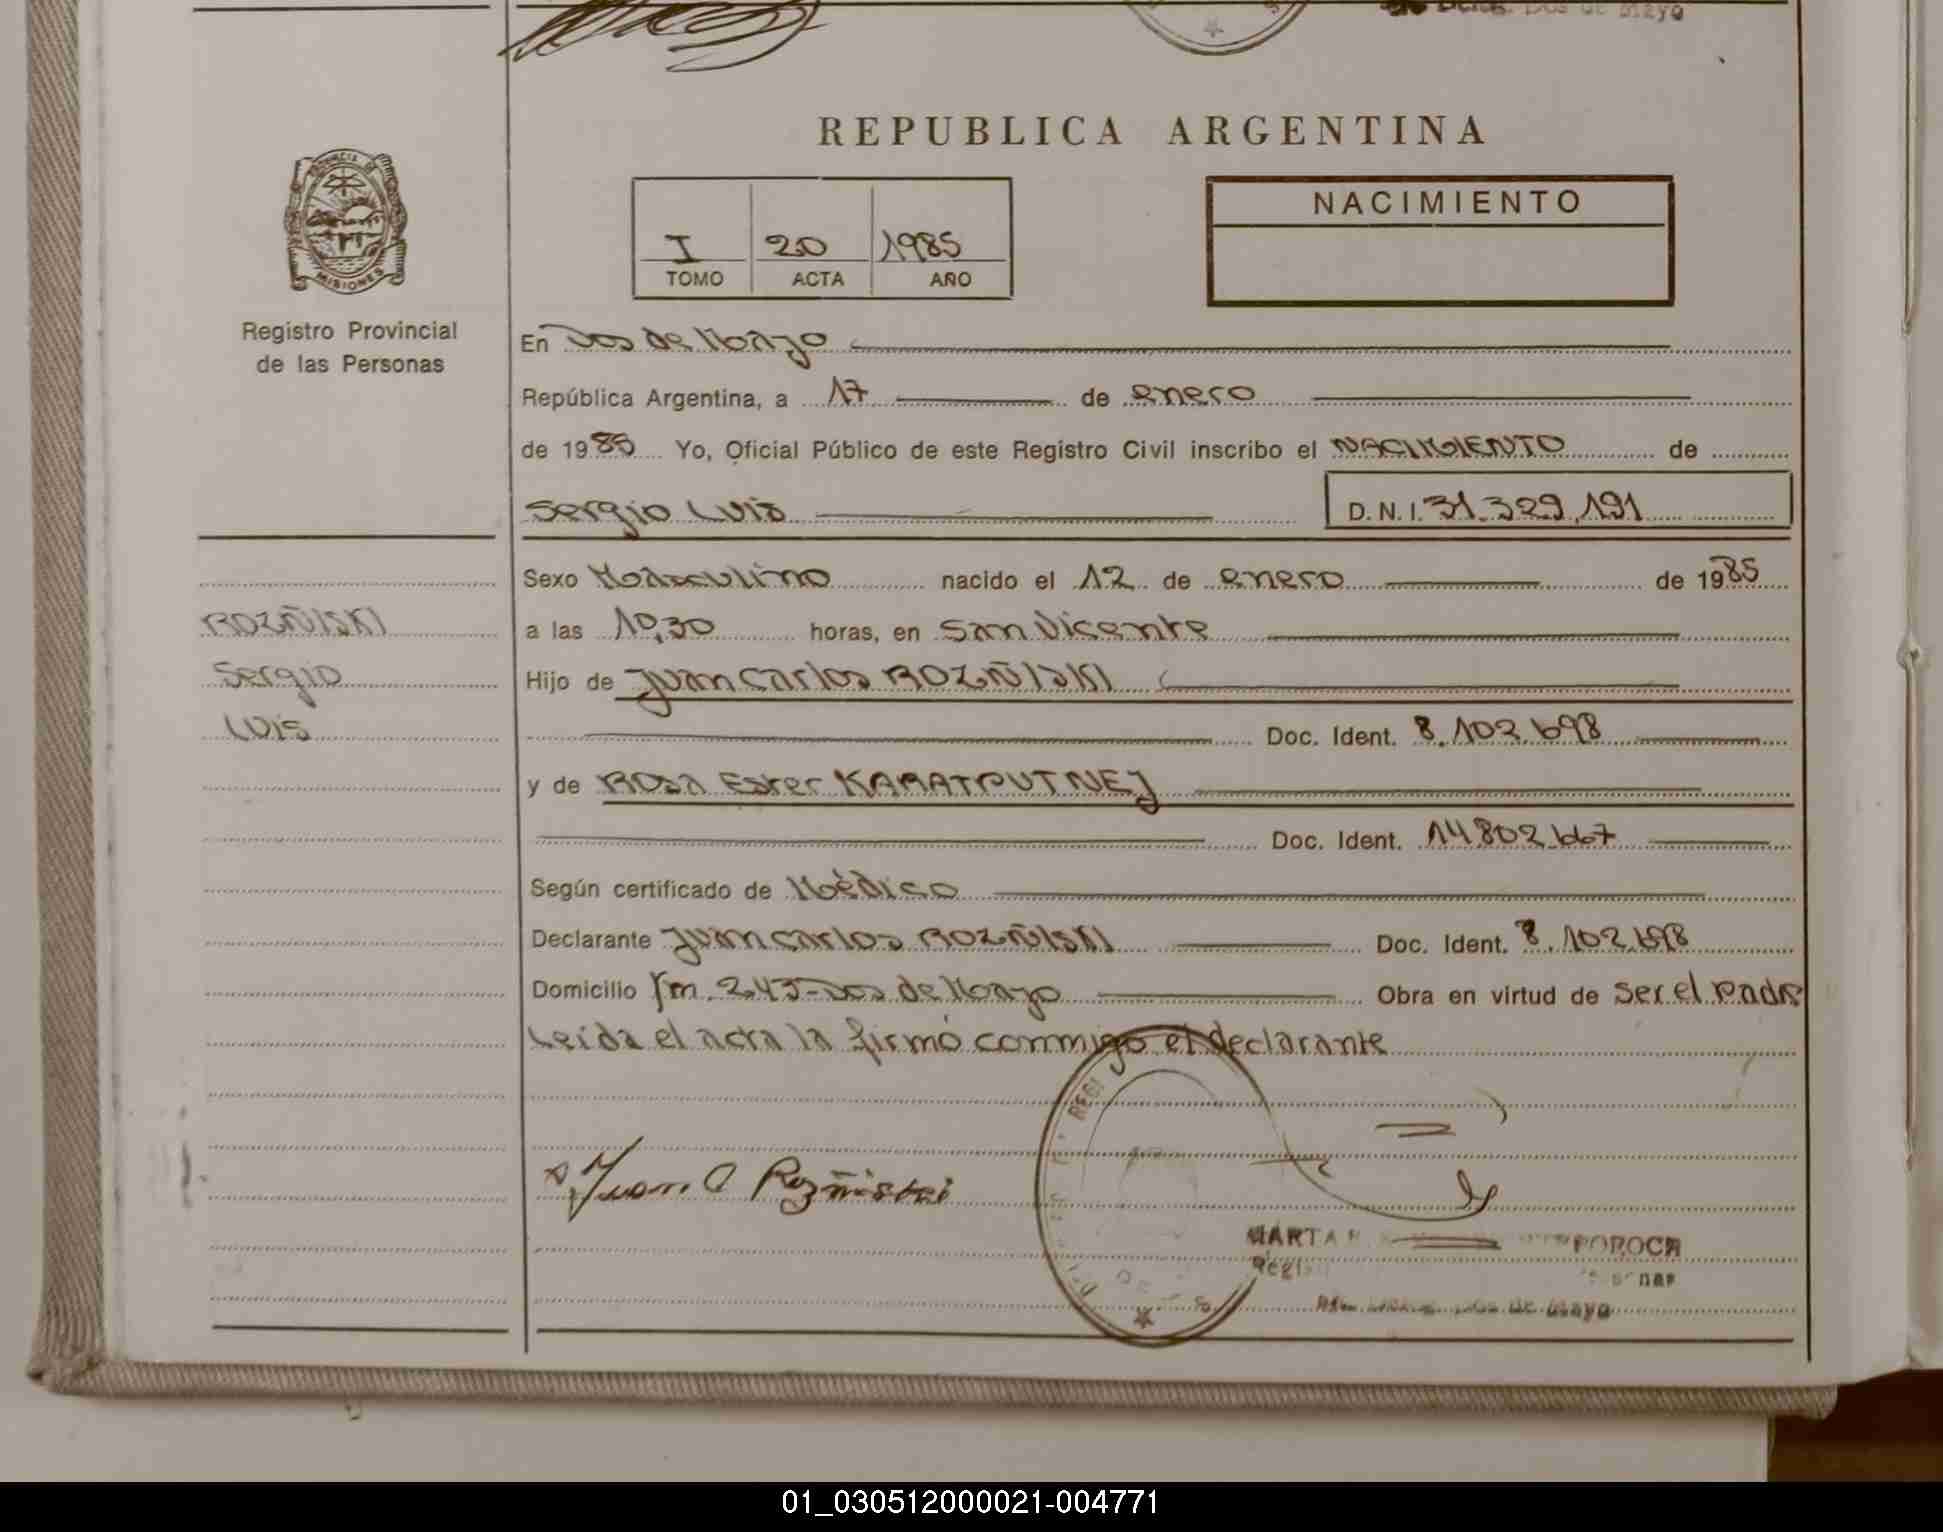 Dos de Mayo
REPUBLICA ARGENTINA
PROVINCIA DE
MISIONES
Registro Provincial
de las Personas
I 20 1985
TOMO ACTA AÑO
NACIMIENTO
En Dos de Mayo
República Argentina, a 17 de enero
de 1985 Yo, Oficial Público de este Registro Civil inscribo el NACIMIENTO de
Sergio Luis D.N.I. 31.329.191
Sexo Masculino nacido el 12 de enero de 1985
ROZÑISKI
Sergio
Luis
a las 10,30 horas, en San Vicente
Hijo de Juan Carlos ROZÑISKI
Doc. Ident. 8.102.698
y de Rosa Ester KARATPUTNEJ
Doc. Ident. 14.802.667
Según certificado de Médico
Declarante Juan Carlos ROZÑISKI Doc. Ident. 8.102.698
Domicilio Km. 243-Dos de Mayo Obra en virtud de ser el padre
Leída el acta la firmó conmigo el declarante
Juan C Rozñiski
MARTA
Dos de Mayo
01_030512000021-004771